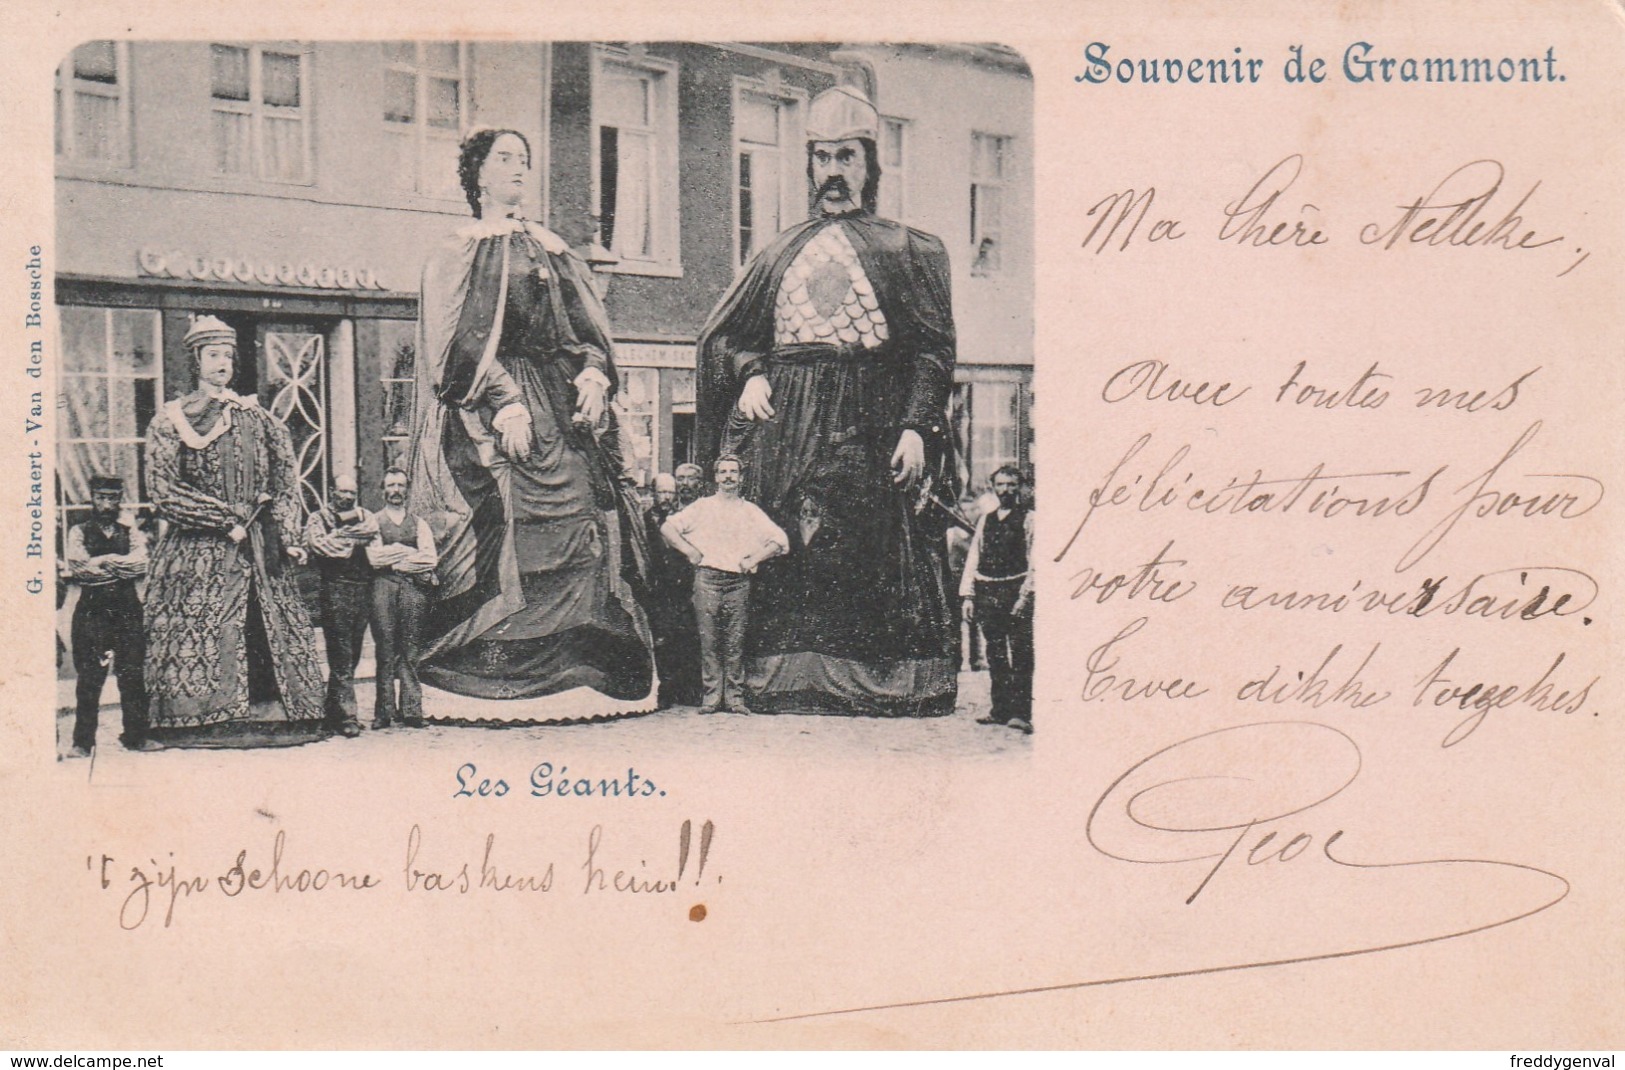 Souvenir de Grammont.
Ma Chère Nelleke,
Avec toutes mes
félicitations pour
votre anniversaire.
Twee dikke toegekes.
G. Broekaert - Van den Bossche
Les Géants.
't zijn schoone baskens hein!!.
www.delcampe.net
freddygenval